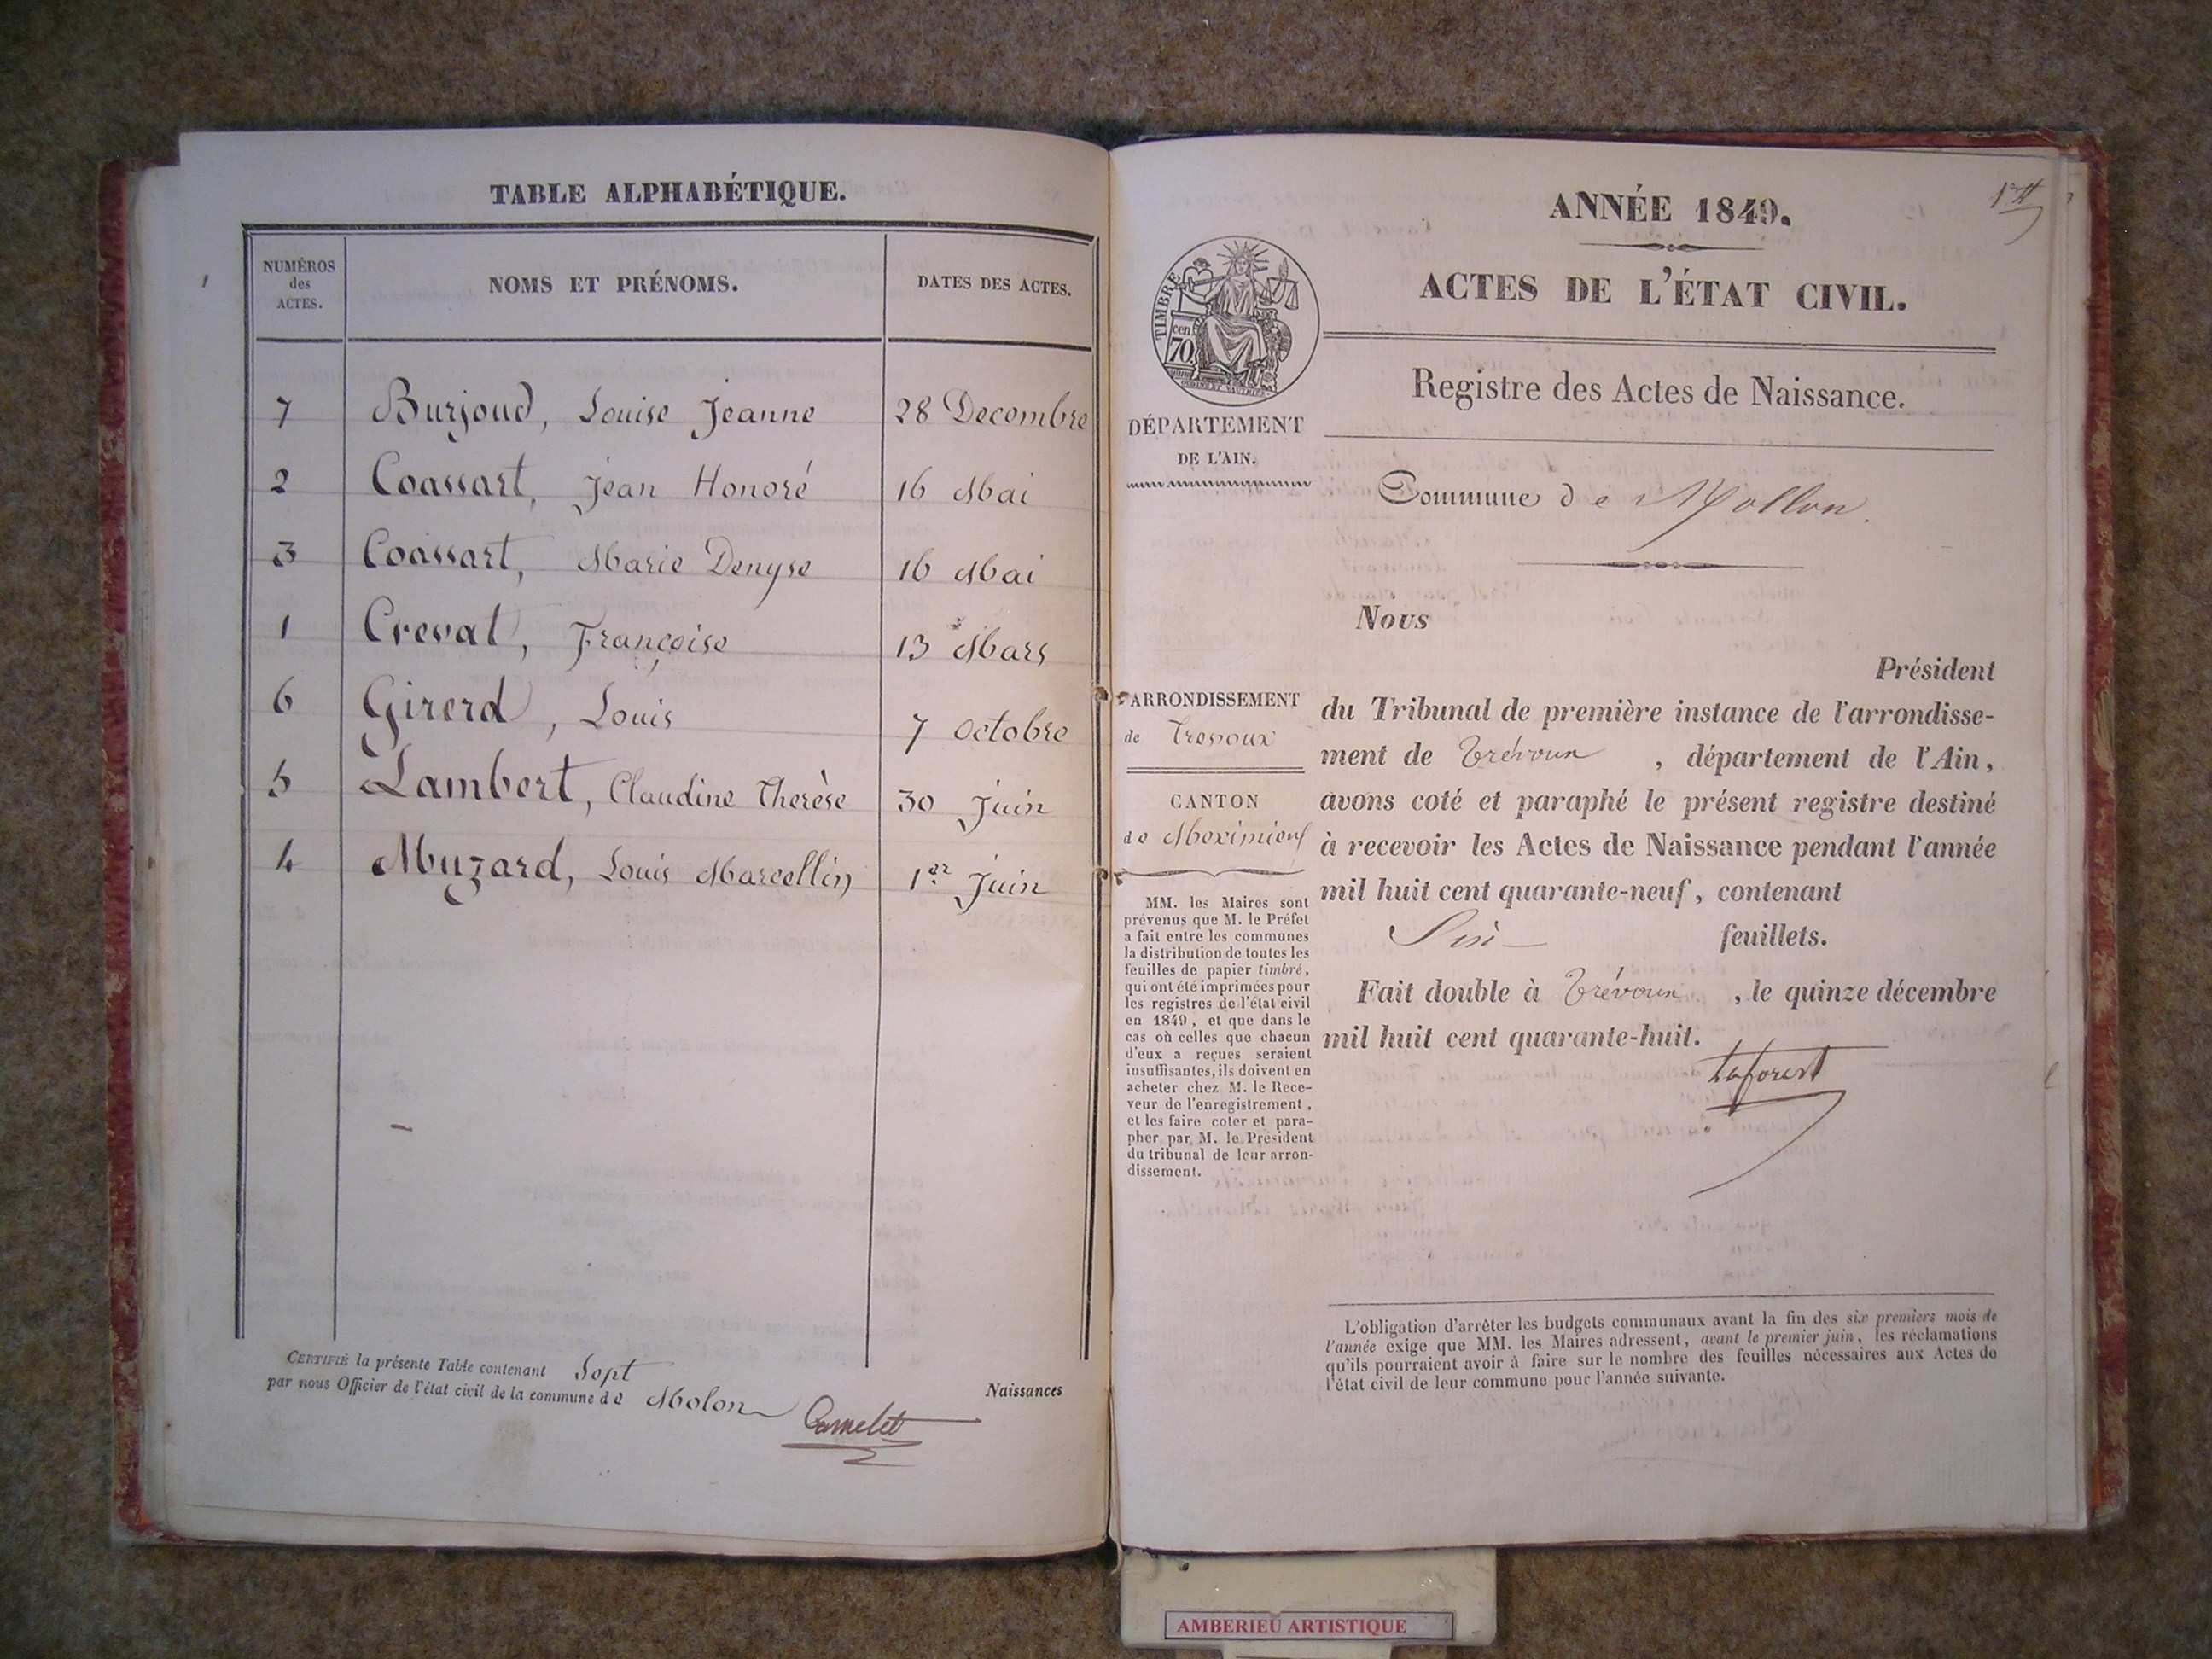 TABLE ALPHABÉTIQUE.
NUMÉROS
des
ACTES.
NOMS ET PRÉNOMS.
DATES DES ACTES.
7 Burjoud, Louise Jeanne 28 Decembre
2 Coassart, Jean Honoré 16 Mai
3 Coassart, Marie Denyse 16 Mai
1 Creval, Françoise 13 Mars
6 Girerd, Louis 7 Octobre
5 Lambert, Claudine Therèse 30 Juin
4 Muzard, Louis Marcellin 1er Juin
CERTIFIÉ la présente Table contenant Sept Naissances
par nous Officier de l'état civil de la commune de Molon
Camelet
ANNÉE 1849.
ACTES DE L'ÉTAT CIVIL.
TIMBRE
cen
70
Registre des Actes de Naissance.
DÉPARTEMENT
DE L'AIN.
Commune de Mollon.
ARRONDISSEMENT
de Trevoux
CANTON
de Meximieux
MM. les Maires sont
prévenus que M. le Préfet
a fait entre les communes
la distribution de toutes les
feuilles de papier timbré,
qui ont été imprimées pour
les registres de l'état civil
en 1849, et que dans le
cas où celles que chacun
d'eux a reçues seraient
insuffisantes, ils doivent en
acheter chez M. le Rece-
veur de l'enregistrement,
et les faire coter et para-
pher par M. le Président
du tribunal de leur arron-
dissement.
Nous
Président
du Tribunal de première instance de l'arrondisse-
ment de Trévoux, département de l'Ain,
avons coté et paraphé le présent registre destiné
à recevoir les Actes de Naissance pendant l'année
mil huit cent quarante-neuf, contenant
Six feuillets.
Fait double à Trévoux, le quinze décembre
mil huit cent quarante-huit.
Laforest
L'obligation d'arrêter les budgets communaux avant la fin des six premiers mois de
l'année exige que MM. les Maires adressent, avant le premier juin, les réclamations
qu'ils pourraient avoir à faire sur le nombre des feuilles nécessaires aux Actes de
l'état civil de leur commune pour l'année suivante.
AMBERIEU ARTISTIQUE